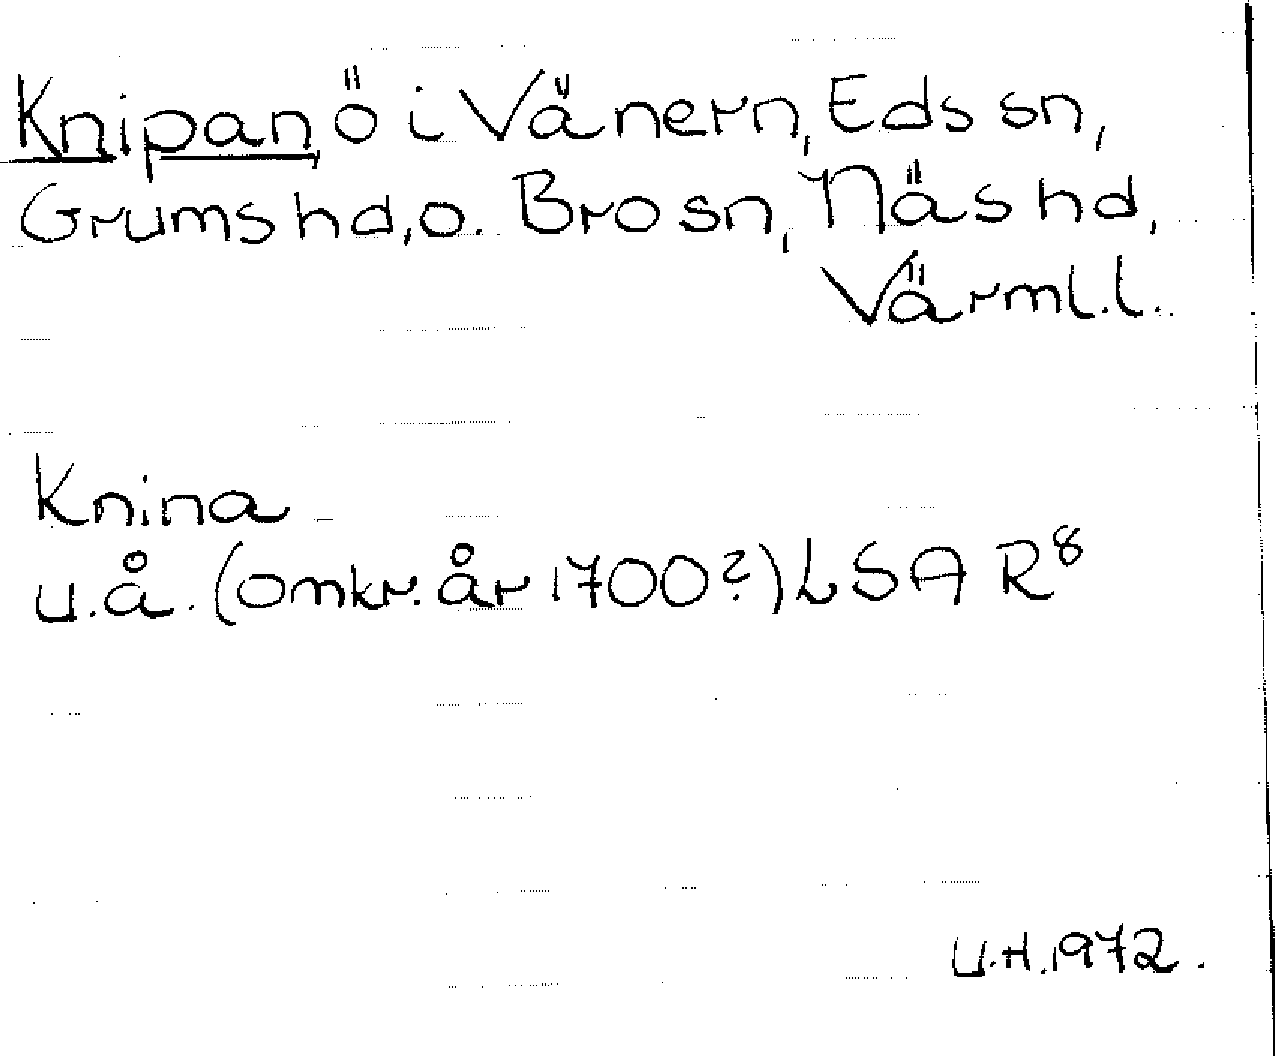 Knipan, ö i Vänern, Eds sn,
Grums hd, o. Bro sn, Näs hd,
Värml. l.
Knina
u.å. (omkr. år 1700?) LSA R8
U.H. 1972.